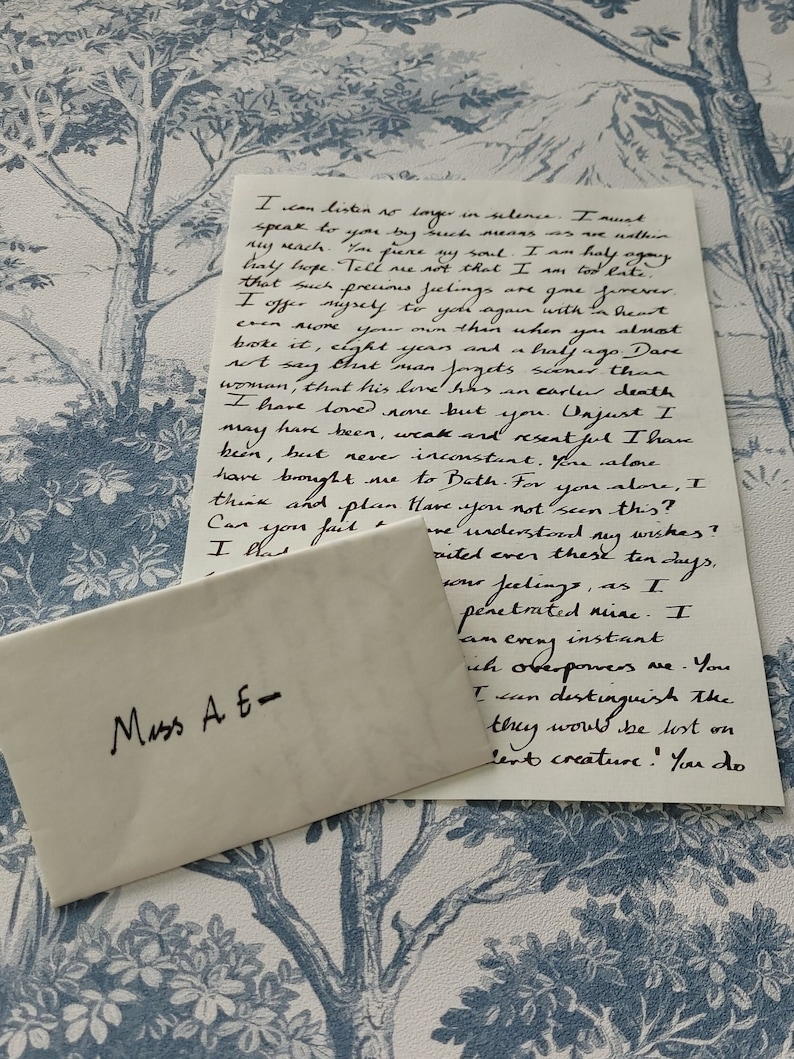 I can listen no longer in silence. I must
speak to you by such means as are within
my reach. You pierce my soul. I am half agony
half hope. Tell me not that I am too late,
that such precious feelings are gone forever.
I offer myself to you again with a heart
even more your own thin when you almost
broke it, eight years and a half ago. Dare
not say that man forgets sooner than
woman, that his love has an earlier death
I have loved none but you. Unjust I
may have been, weak and resentful I have
been, but never inconstant. You alone
have brought me to Bath. For you alone, I
think and plan. Have you not seen this?
Can you fail understood my wishes?
I had even these ten days,
your feelings, as I
penetrated mine. I
am every instant
overpowers me. You
I can distinguish the
they would be lost on
creature! You do
Miss A E-